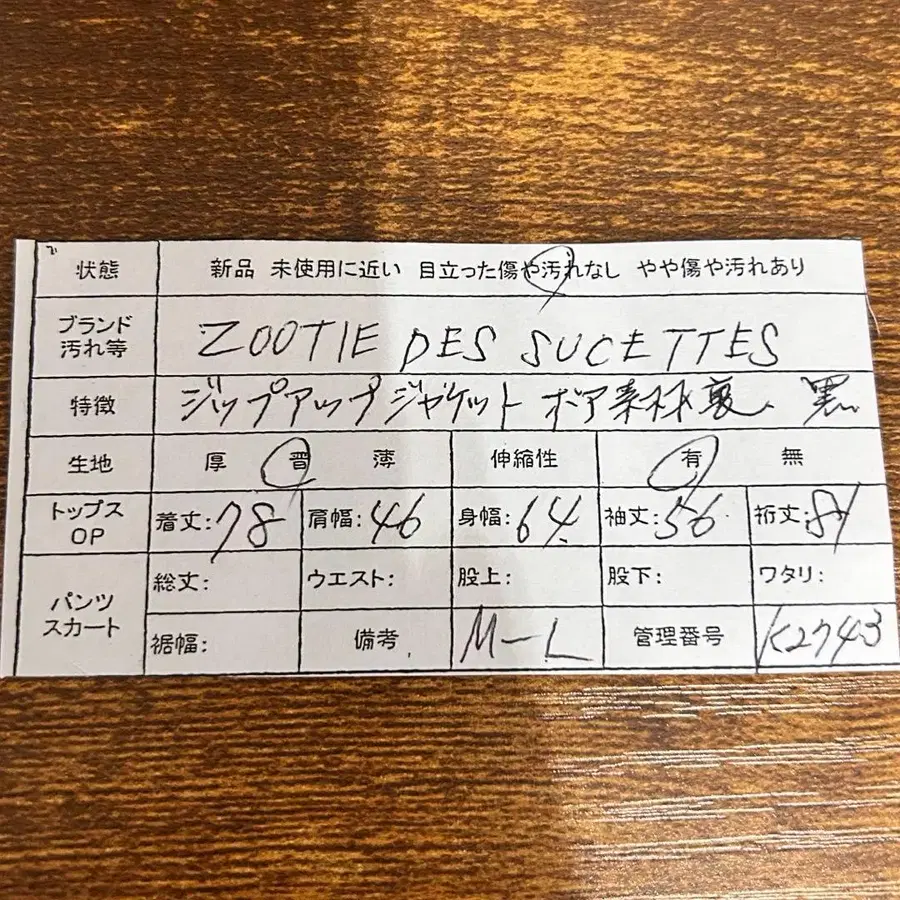 状態 新品 未使用に近い 目立った傷や汚れなし やや傷や汚れあり
ブランド
汚れ等
ZOOTIE DES SUCETTES
特徴 ジップアップジャケット ボア素材裏、黒
生地 厚 普 薄 伸縮性 有 無
トップス
OP
着丈:78 肩幅:46 身幅:64 袖丈:56 裄丈:81
パンツ
スカート
総丈: ウエスト: 股上: 股下: ワタリ:
裾幅: 備考 M-L 管理番号 K2743